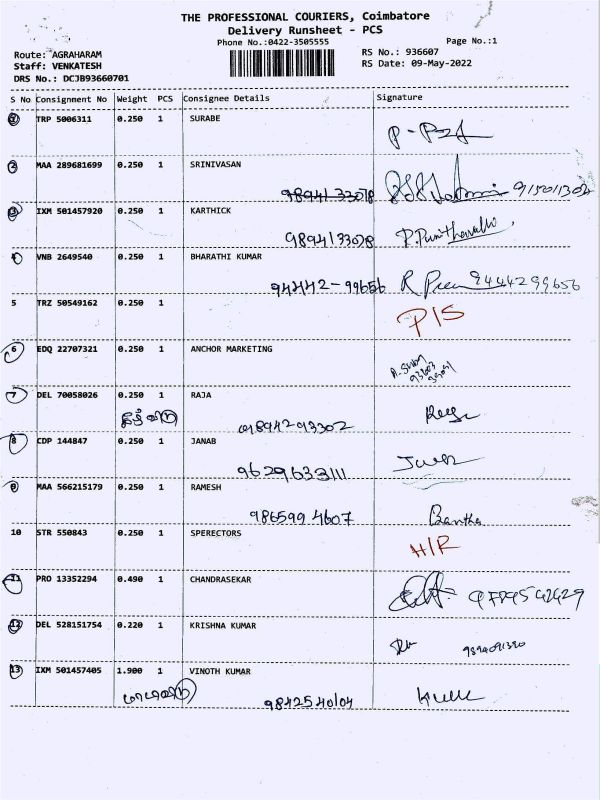 THE PROFESSIONAL COURIERS, Coimbatore
Delivery Runsheet - PCS
Phone No.:0422-3505555 Page No.:1
Route: AGRAHARAM RS No.: 936607
Staff: VENKATESH RS Date: 09-May-2022
DRS No.: DCJB93660701
S No Consignment No Weight PCS Consignee Details Signature
1 TRP 5006311 0.250 1 SURABE
2 MAA 289681699 0.250 1 SRINIVASAN
9894133078
3 IXM 501457920 0.250 1 KARTHICK
9894133078 P.Punithavalli
4 VNB 2649540 0.250 1 BHARATHI KUMAR
94442-99656 R Prem 9444299656
5 TRZ 50549162 0.250 1 P/S
6 EDQ 22707321 0.250 1 ANCHOR MARKETING
7 DEL 70058026 0.250 1 RAJA
9894293302
8 CDP 144847 0.250 1 JANAB
9629633111
9 MAA 566215179 0.250 1 RAMESH
986599 4607
10 STR 550843 0.250 1 SPERECTORS H/R
11 PRO 13352294 0.490 1 CHANDRASEKAR
12 DEL 528151754 0.220 1 KRISHNA KUMAR
13 IXM 501457405 1.900 1 VINOTH KUMAR
9842540104